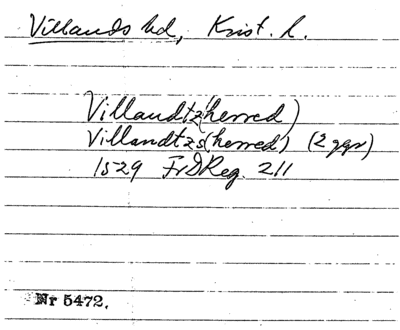 Villands hd, Krist. l.
Villandtz(herred)
Villandtzs(herred) (2 ggr)
1529 FrDReg. 211
Nr 5472.